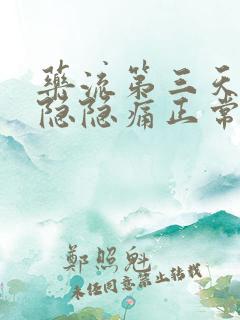 药流第三天
隐隐痛正常
鄭照魁
未经同意禁止转载